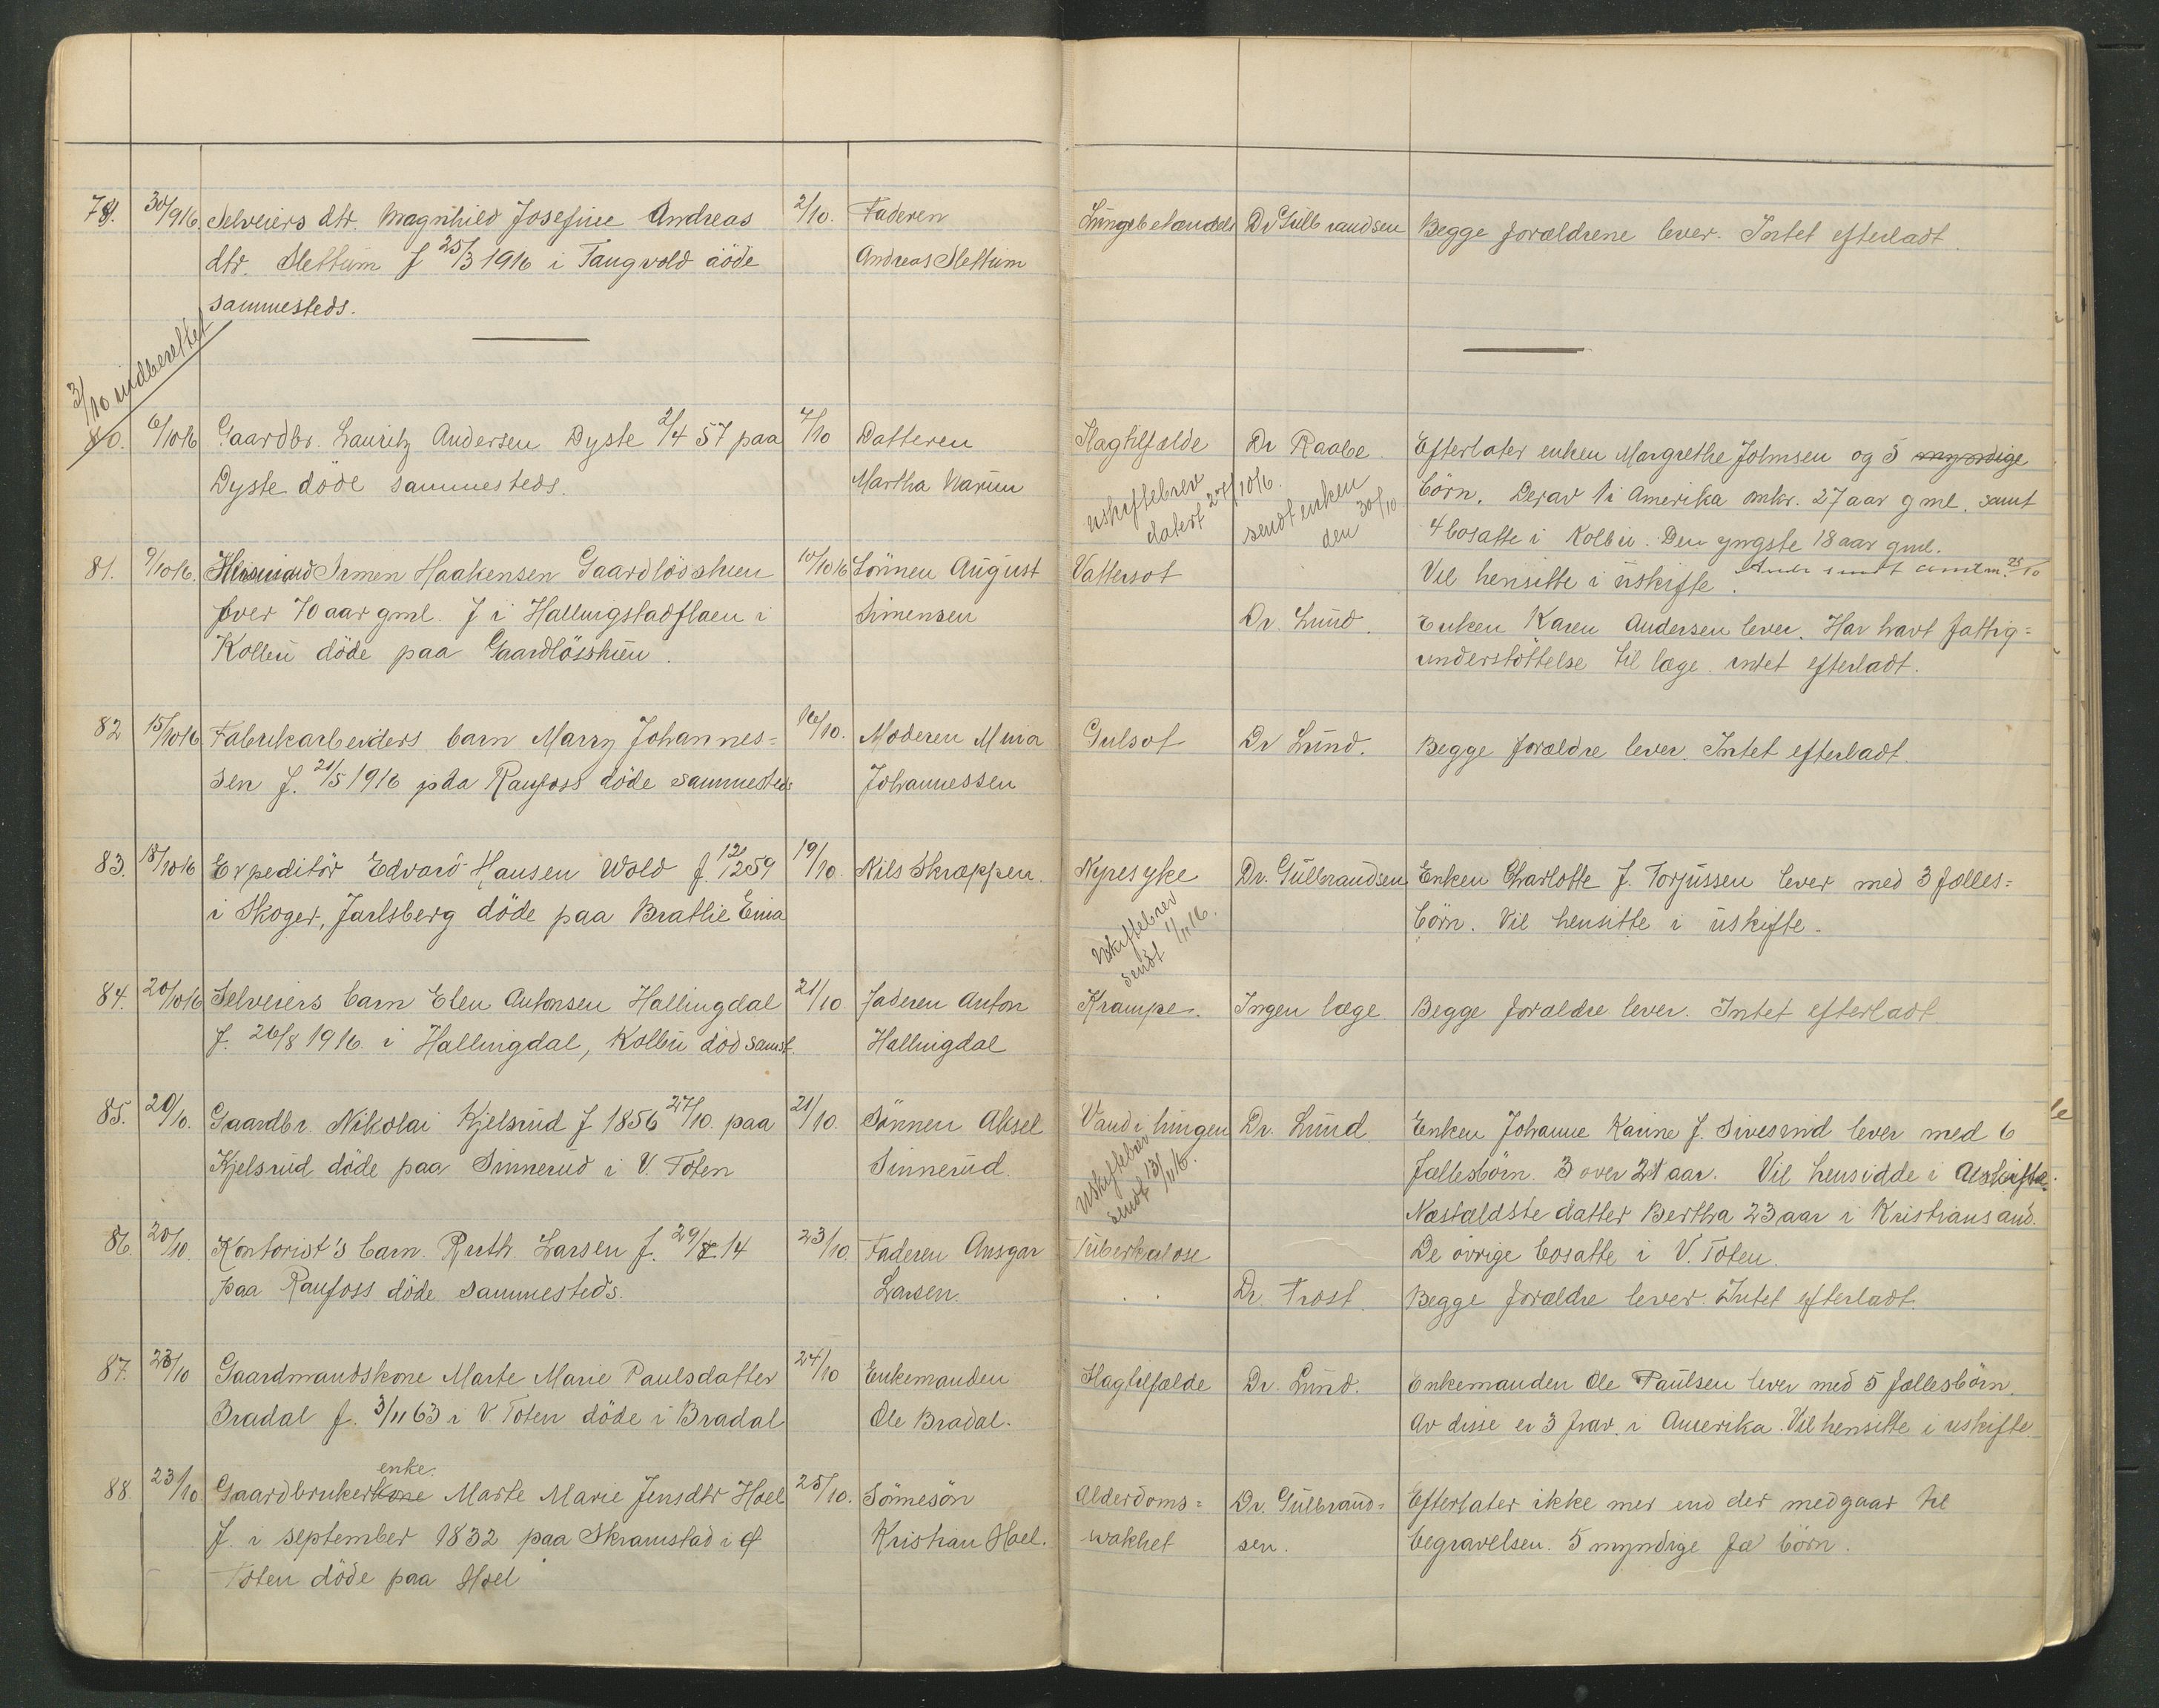 79. 30/9 16. Selveiers dtr. Magnhild Josefine Andreas 2/10. Faderen Lungebetændelse Dr Gulbrandsen Begge forældrene lever. Intet efterladt.
dtr. Slettum f 25/3 1916 i Taugvold döde Andreas Slettum
sammesteds.
3/10 indberettet
80. 6/10 16 Gaardbr. Lauritz Andersen Dyste 2/4 57 paa 7/10 Datteren Slagtilfælde Dr Raabe. Efterlater enken Margrethe Johnsen og 5 myndige
Dyste döde sammesteds. Martha Narum uskiftebrev datert 27/10 16. sendt enken den 30/10 börn. Derav 1 i Amerika omkr. 27 aar gml. samt
4 bosatte i Kolbu. Den yngste 18 aar gml.
81. 9/10 16. Husmand Simen Haakensen Gaardlösshuen 10/10 16 Sönnen August Vattersot Vil hensitte i uskifte. 25/10
over 70 aar gml. f i Hallingstadflaen i Simensen Dr. Lund. Enken Karen Andersen lever. Har havt fattig=
Kolbu döde paa Gaardlösshuen. understöttelse til læge. intet efterladt.
82 15/10 16 Fabrikarbeiders barn Marry Johannes= 16/10. Moderen Mina Gulsot Dr Lund. Begge forældre lever. Intet efterladt.
sen f. 21/5 1916 paa Raufoss döde sammesteds Johannessen
83. 18/10 16 Expeditör Edvard Hansen Wold f. 12/12 59 19/10. Nils Skrappen. Nyresyke Dr. Gulbrandsen Enken Charlotte f. Torjussen lever med 3 fælles=
i Skoger, Jarlsberg döde paa Bratlie Eina Uskiftebrev sendt 1/11 16. börn. Vil hensitte i uskifte.
84. 20/10 16 Selveiers barn Elen Antonsen Hallingdal 21/10 faderen Anton Krampe. Ingen læge Begge forældre lever. Intet efterladt
f. 26/8 1916. i Hallingdal, Kolbu död samst. Hallingdal
85. 20/10. Gaardbr. Nikolai Kjelsrud f 1856 27/10. paa 21/10. Sönnen Aksel Vand i lungen Dr. Lund. Enken Johanne Karine f. Sivesind lever med 6
Kjelsrud döde paa Sinnerud i V. Toten Sinnerud. Uskiftebrev sendt 13/11 16. Fællesbörn. 3 over 21 aar. Vil hensidde i Uskifte.
Næstældste datter Bertha 23 aar i Kristiansand.
86. 20/10. Kontorist's barn. Ruth. Larsen f. 29/8 14 23/10. Faderen Ansgar Tuberkulose De övrige bosatte i V. Toten.
paa Raufoss döde sammesteds. Larsen. Dr. Trost. Begge forældre lever. Intet efterladt.
87. 23/10 Gaardmandskone Marte Marie Paulsdatter 24/10 Enkemanden Slagtilfælde Dr. Lund. Enkemanden Ole Paulsen lever med 5 fællesbörn.
Bradal f. 3/11 63 i V. Toten döde i Bradal Ole Bradal. Av disse er 3 frav. i Amerika. Vil hensitte i uskifte.
enke.
88. 23/10 Gaardbrukerkone Marte Marie Jensdtr Hoel 25/10. Sönnesön Alderdoms= Dr. Gulbrand= Efterlater ikke mer end der medgaar til
f. i september 1832 paa Skramstad i Ø Kristian Hoel. svakhet sen. begravelsen. 5 myndige börn.
Toten döde paa Hoel